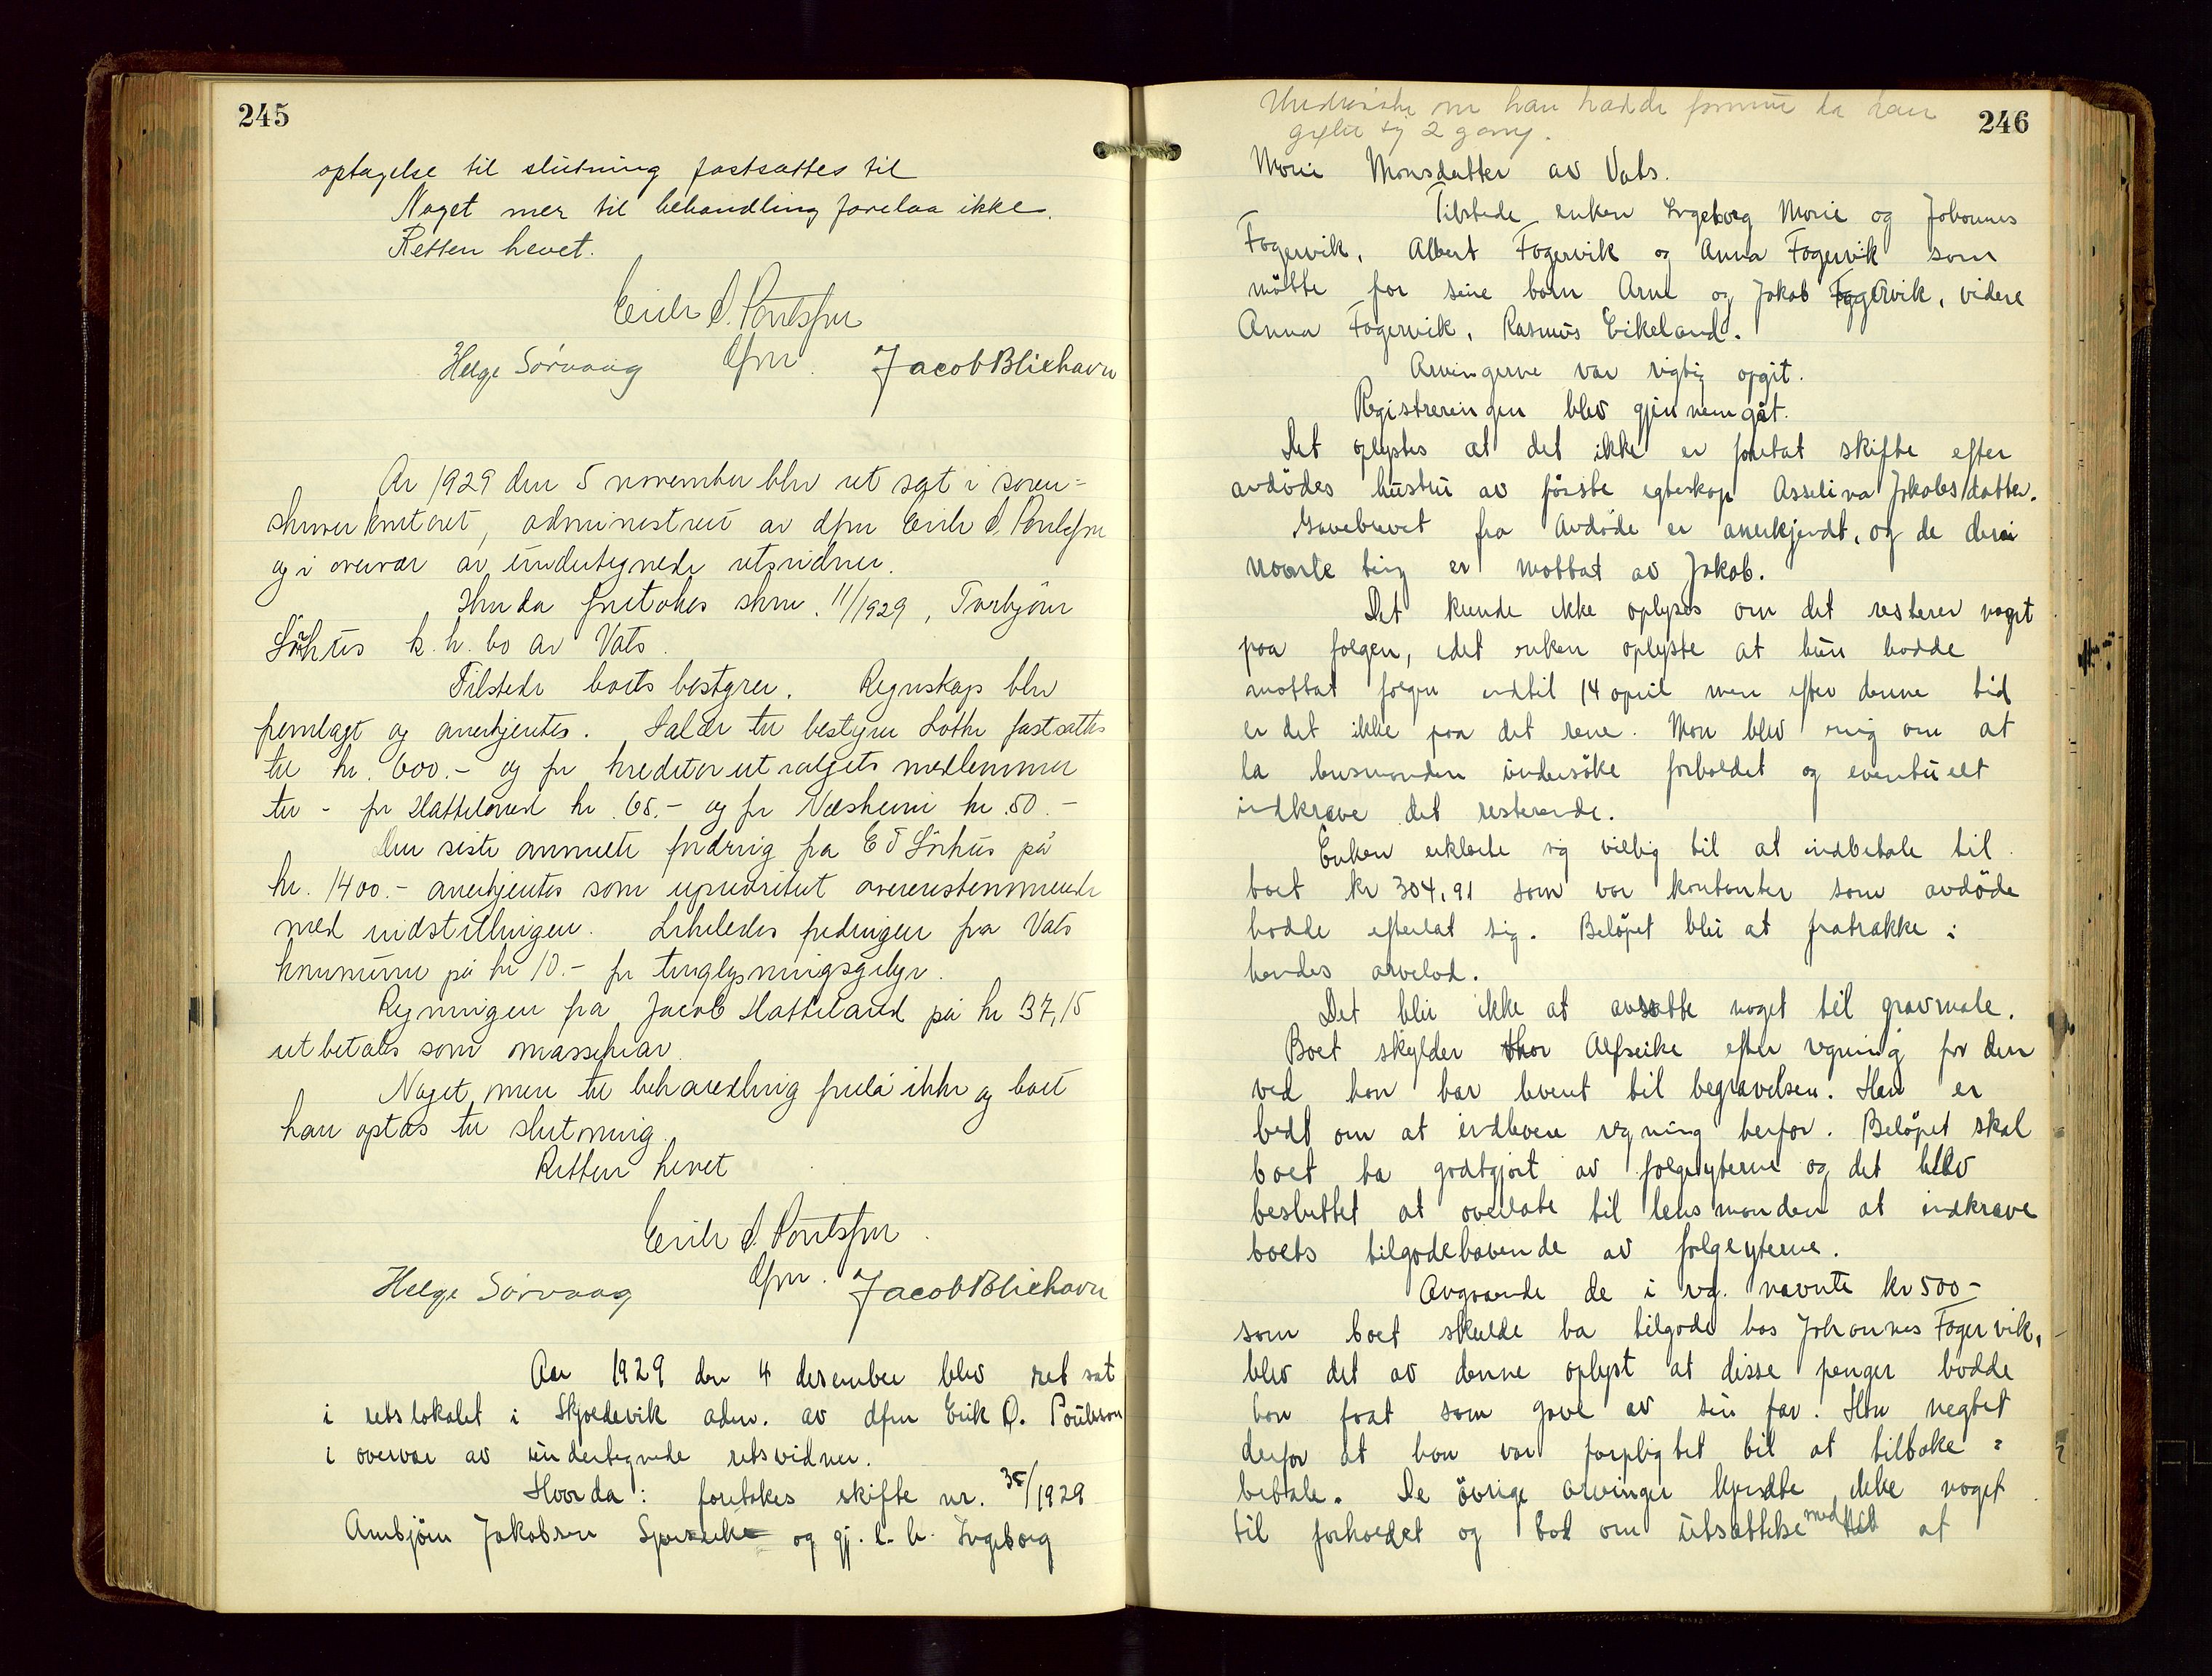 245
optagelse til slutning fastsattes til
Noget mer til behandling forelaa ikke.
Retten hevet.
Erik O. Poulsson
dfm
Helge Sørvaag JacobBliehavn
År 1929 den 5 november blev ret sat i soren=
skriverkontoret, administrert av dfm Erik O. Poulsson
og i overvær av undertegnede retsvidner.
Hvorda foretokes skm. 11/1929, Torbjörn
Sörhus k. h. bo av Vats.
Tilstede boets bestyrer. Regnskap blev
fremlagt og anerkjentes. Salær til bestyrer Lothe fastsattes
til kr. 600.- og for kreditorutvalgets medlemmer
til - for Hatteland kr. 65.- og for Næsheim kr. 50.-
Den siste anmeldte fordring fra E T Sörhus på
kr. 1400.- anerkjentes som uprioritert overensstemmende
med indstillingen. Likeledes fordringen fra Vats
kommune på kr 10.- for tinglysningsgebyr.
Regningen fra Jacob Hatteland på kr 37,15
utbetales som massekrav.
Noget mere til behandling forelå ikke og boet
kan optas til slutning.
Retten hevet
Erik O. Poulsson
dfm.
Helge Sørvaag JacobBliehavn
Aar 1929 den 4 desember blev ret sat
i retslokalet i Skjoldevik adm. av dfm Erik O. Poulsson
i overvær av undertegnede retsvidner.
Hvorda: foretokes skifte nr. 35/1929
Arnbjörn Jakobsen og gj. l. h. Ingeborg
246
Undersøke om han hadde formue da han
giftet sig 2 gang.
Marie Monsdatter av Vats.
Tilstede enken Ingeborg Marie og Johannes
Fagervik, Albert Fagervik og Anna Fagervik som
mötte for sine barn Arne og Jakob Fagervik, videre
Anna Fagervik, Rasmus Eikeland.
Arvingerne var rigtig opgit.
Registreringen blev gjennemgåt.
Det oplystes at det ikke er foretat skifte efter
avdödes hustru av förste egteskap Asselina Jakobsdatter.
Gavebrevet fra avdöde er anerkjendt, og de deri
nævnte ting er mottat av Jakob.
Det kunde ikke oplyses om det resterer noget
paa folgen, idet enken oplyste at hun hadde
mottat folgen indtil 14 april men efter denne tid
er det ikke paa det rene. Man blev enig om at
la lensmanden undersöke forholdet og eventuelt
indkræve det resterende.
Enken erklærte sig villig til at indbetale til
boet kr 304,91 som var kontanter som avdöde
hadde efterlat sig. Belöpet blir at fratrække i
hendes arvelod.
Det blir ikke at avsætte noget til gravmæle.
Boet skylder Thor Alfseike efter regning for den
ved han har levert til begravelsen. Han er
bedt om at indlevere regning herfor. Belöpet skal
boet ha godtgjort av folgeyterne og det blev
besluttet at overlate til lensmanden at indkræve
boets tilgodehavende av folgeyterne.
Angaaende de i reg. nævnte kr 500-
som boet skulde ha tilgode hos Johannes Fagervik,
blev det av denne oplyst at disse penger hadde
han faat som gave av sin far. Han negtet
derfor at han var forpligtet til at tilbake =
betale. De övrige arvinger kjendte ikke noget
til forholdet og bad om utsættelse med at